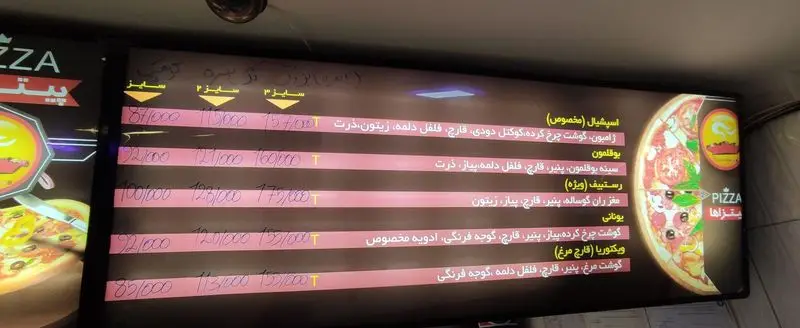 ZZA
سایز ۳ سایز ۲ سایز
اسپشیال (مخصوص)
ژامبون، گوشت چرخ کرده، کوکتل دودی، قارچ، فلفل دلمه، زیتون، ذرت
T 157/000 115/000 87/000
بوقلمون
سینه بوقلمون، پنیر، قارچ، فلفل دلمه، پیاز، ذرت
T 160/000 121/000 92/000
رست‌بیف (ویژه)
مغز ران گوساله، پنیر، قارچ، پیاز، زیتون
T 175/000 128/000 100/000
یونانی
گوشت چرخ کرده، پیاز، پنیر، قارچ، گوجه فرنگی، ادویه مخصوص
T 155/000 120/000 92/000
ویکتوریا (قارچ مرغ)
گوشت مرغ، پنیر، قارچ، فلفل دلمه، گوجه فرنگی
T 155/000 113/000 85/000
PIZZA
پیتزاها